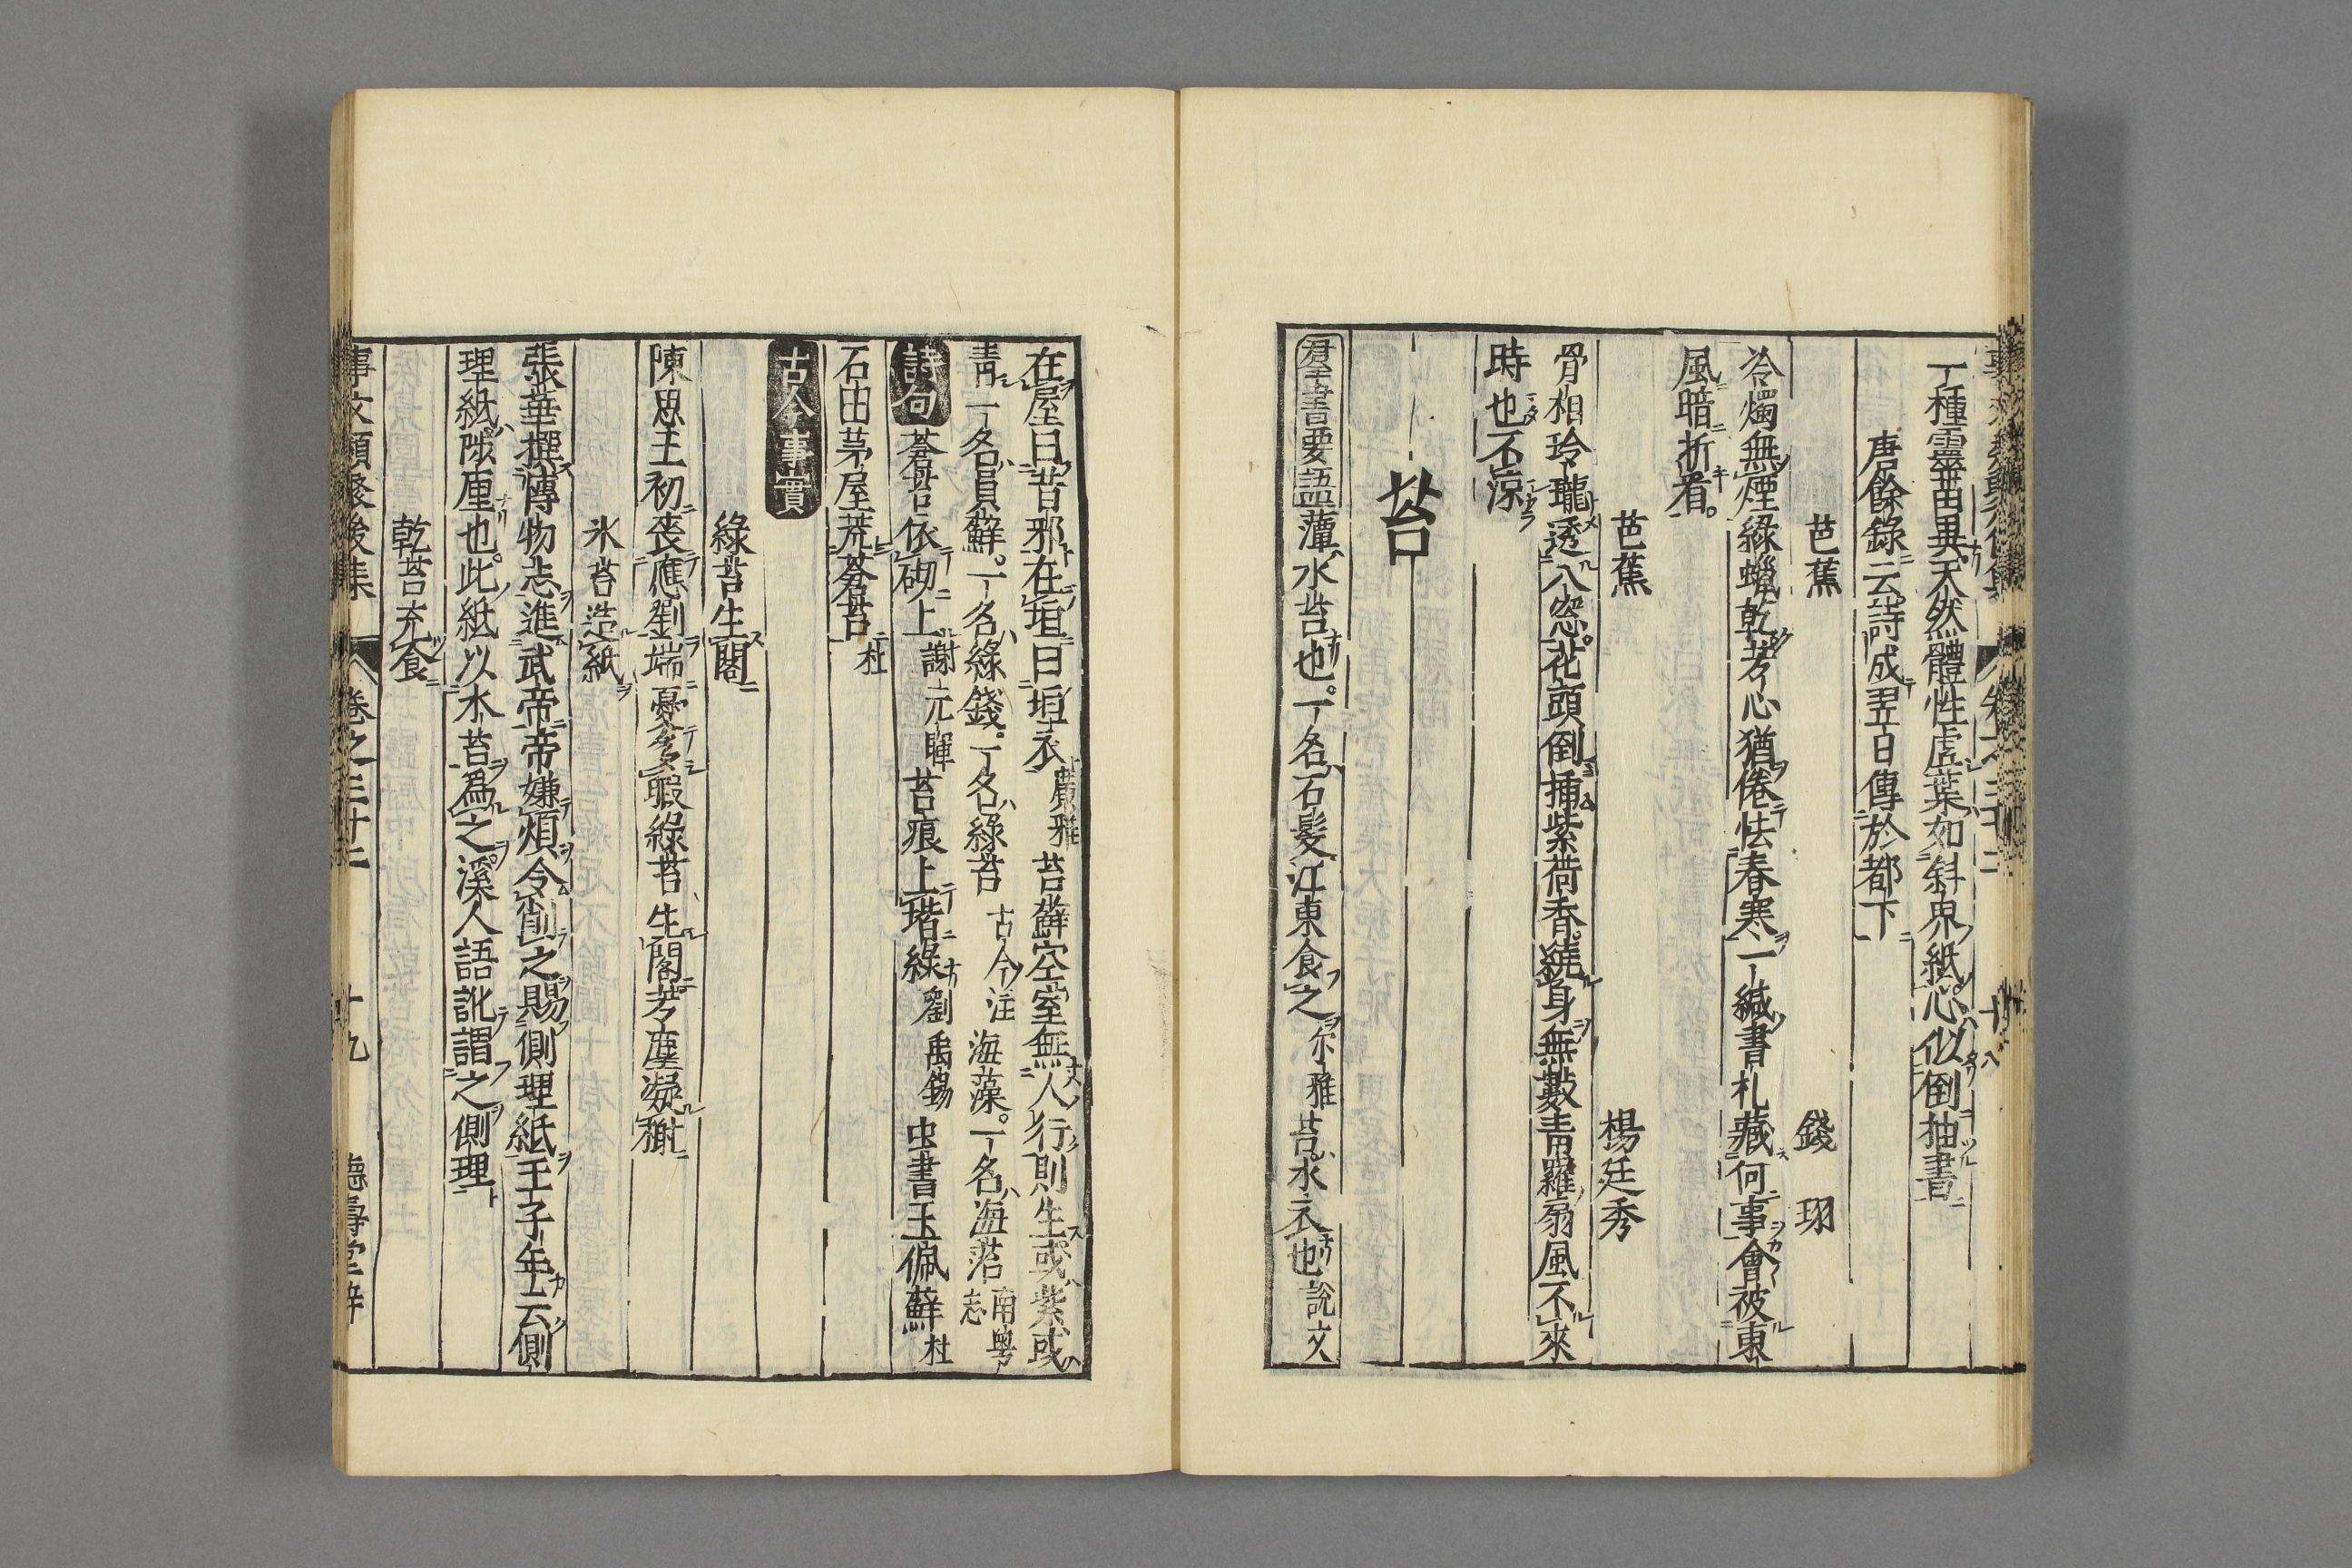 一種靈苗異天然體性虛葉如斜界紙心似倒抽書
唐餘錄云詩成翌日傳於都下
芭蕉　錢珝
冷燭無煙綠蠟乾芳心猶倦怯春寒一緘書札藏何事會被東
風暗折看
芭蕉　楊廷秀
骨相玲瓏透八窓花頭倒插紫荷香繞身無數青羅扇風不來
時也不凉
苔
羣書要語 藫水苔也一名石髮江東食之 尔雅 苔水衣也 說文
在屋曰昔邪在垣曰垣衣 廣雅 苔蘚空室無人行則生或紫或
青一名員蘚一名綠錢一名綠苔 古今注 海藻一名海苔 南粵志
詩句 蒼苔依砌上 謝元暉 苔痕上堦綠 劉禹錫 虫書玉佩蘚 杜
石田茅屋荒蒼苔 杜
古今事實
綠苔生閣
陳思王初喪應劉端憂多暇綠苔生閣芳塵凝榭
水苔造紙
張華撰博物志進武帝帝嫌煩令削之賜側理紙王子年云側
理紙陟厘也此紙以水苔爲之溪人語訛謂之側理
乾苔充食
事文類聚後集　卷之三十二　十九　德壽堂梓